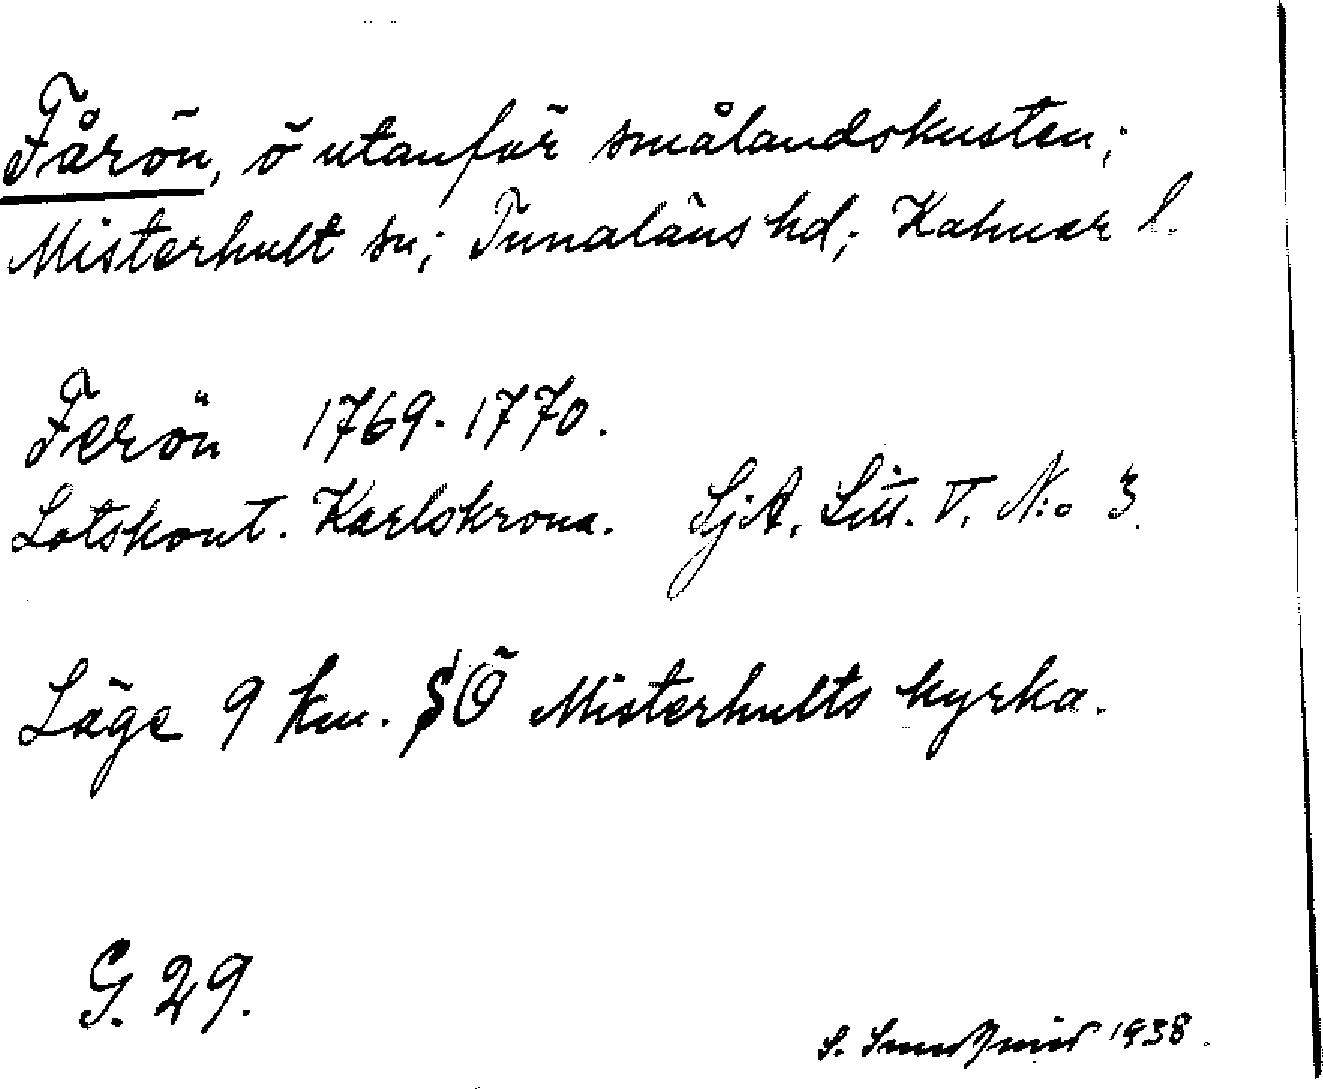 Fårön, ö utanför smålandskusten;
Misterhult sn; Tunaläns hd; Kalmar l.
Ferön 1769-1770.
Lotskont. Karlskrona. SjA, Litt. V. N:o 3.
Läge 9 km. SÖ Misterhults kyrka.
G. 29.
S. 1938.